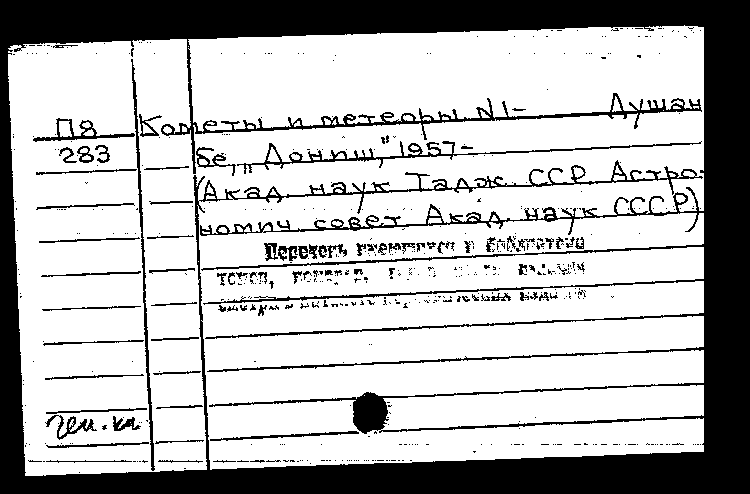 П8 Кометы и метеоры N1- Душан
283 бе, „Дониш", 1957-
(Акад. наук Тадж. ССР. Астро-
номич. совет Акад. наук СССР)
Перечень имеющихся в библиотеке
томов,